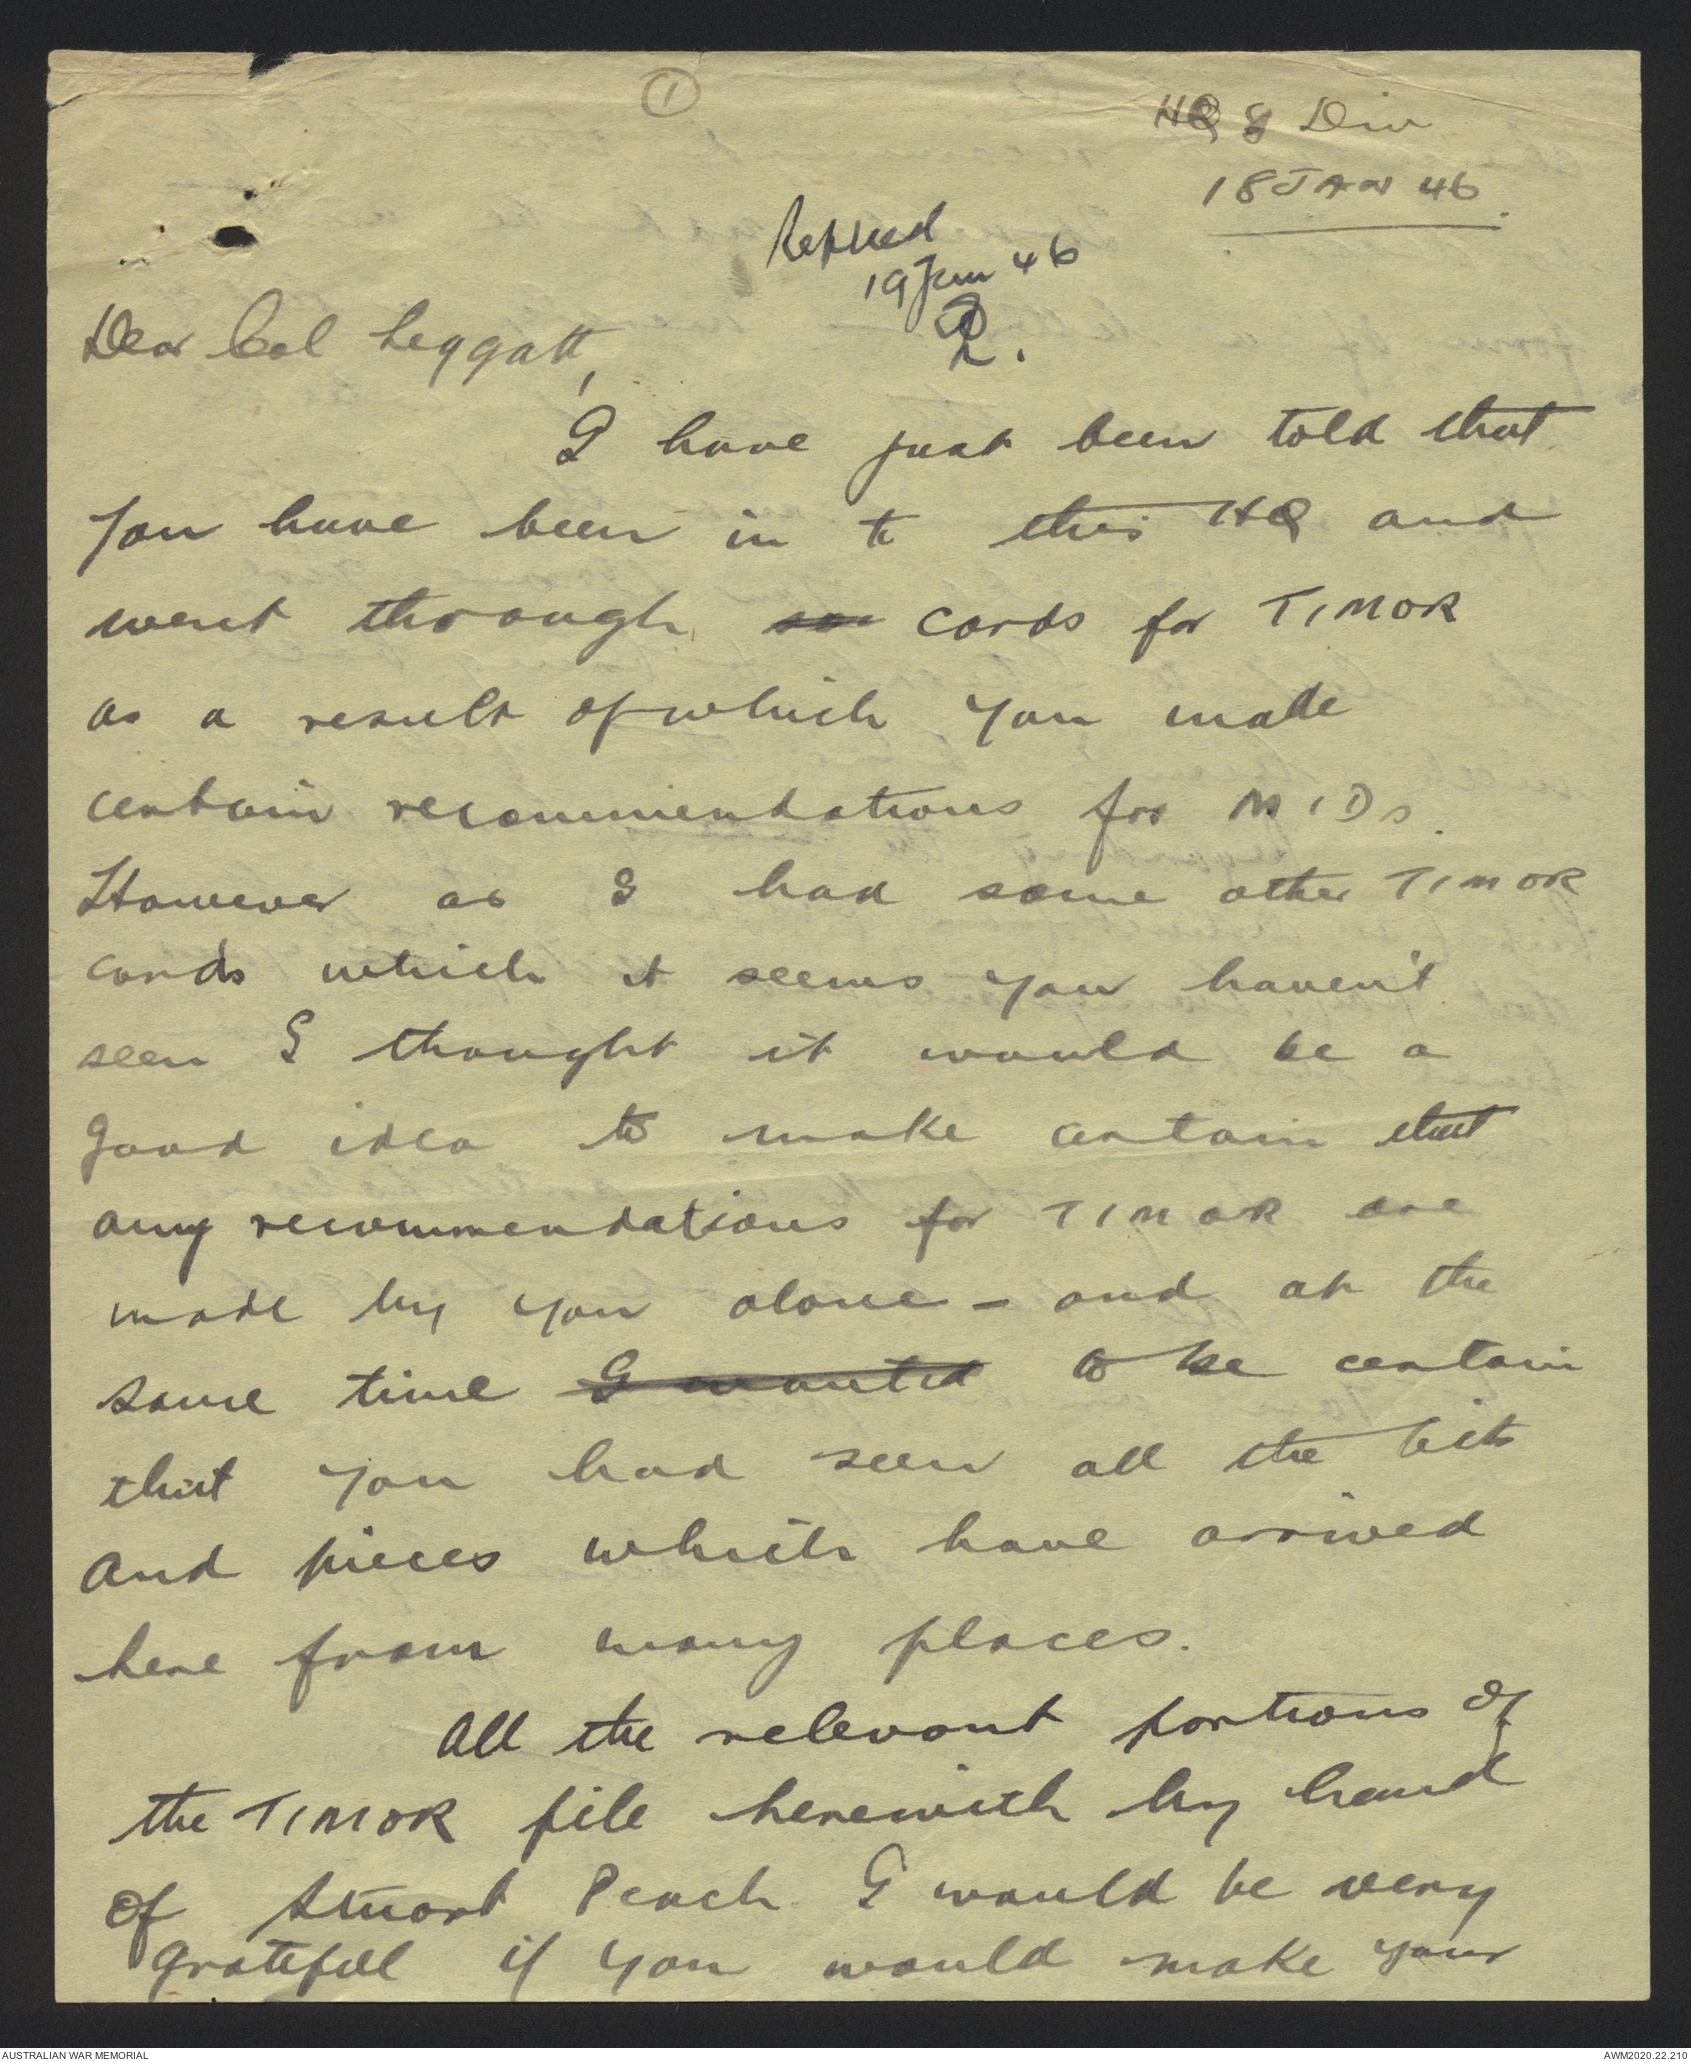 ①
HQ 8 Div
18 JAN 46.
Replied
19 Jan 46
Dear Col Leggatt,
I have just been told that
you have been in to this HQ and
went through cards for TIMOR
as a result of which you made
certain recommendations for MIDs.
However as I had some other TIMOR
cards which it seems you haven't
seen I thought it would be a
good idea to make certain that
any recommendations for TIMOR are
made by you alone – and at the
same time I wanted to be certain
that you had seen all the bits
and pieces which have arrived
here from many places.
All the relevant portions of
the TIMOR file herewith by hand
of Stuart Peach I would be very
grateful if you would make your
AUSTRALIAN WAR MEMORIAL
AWM2020.22.210